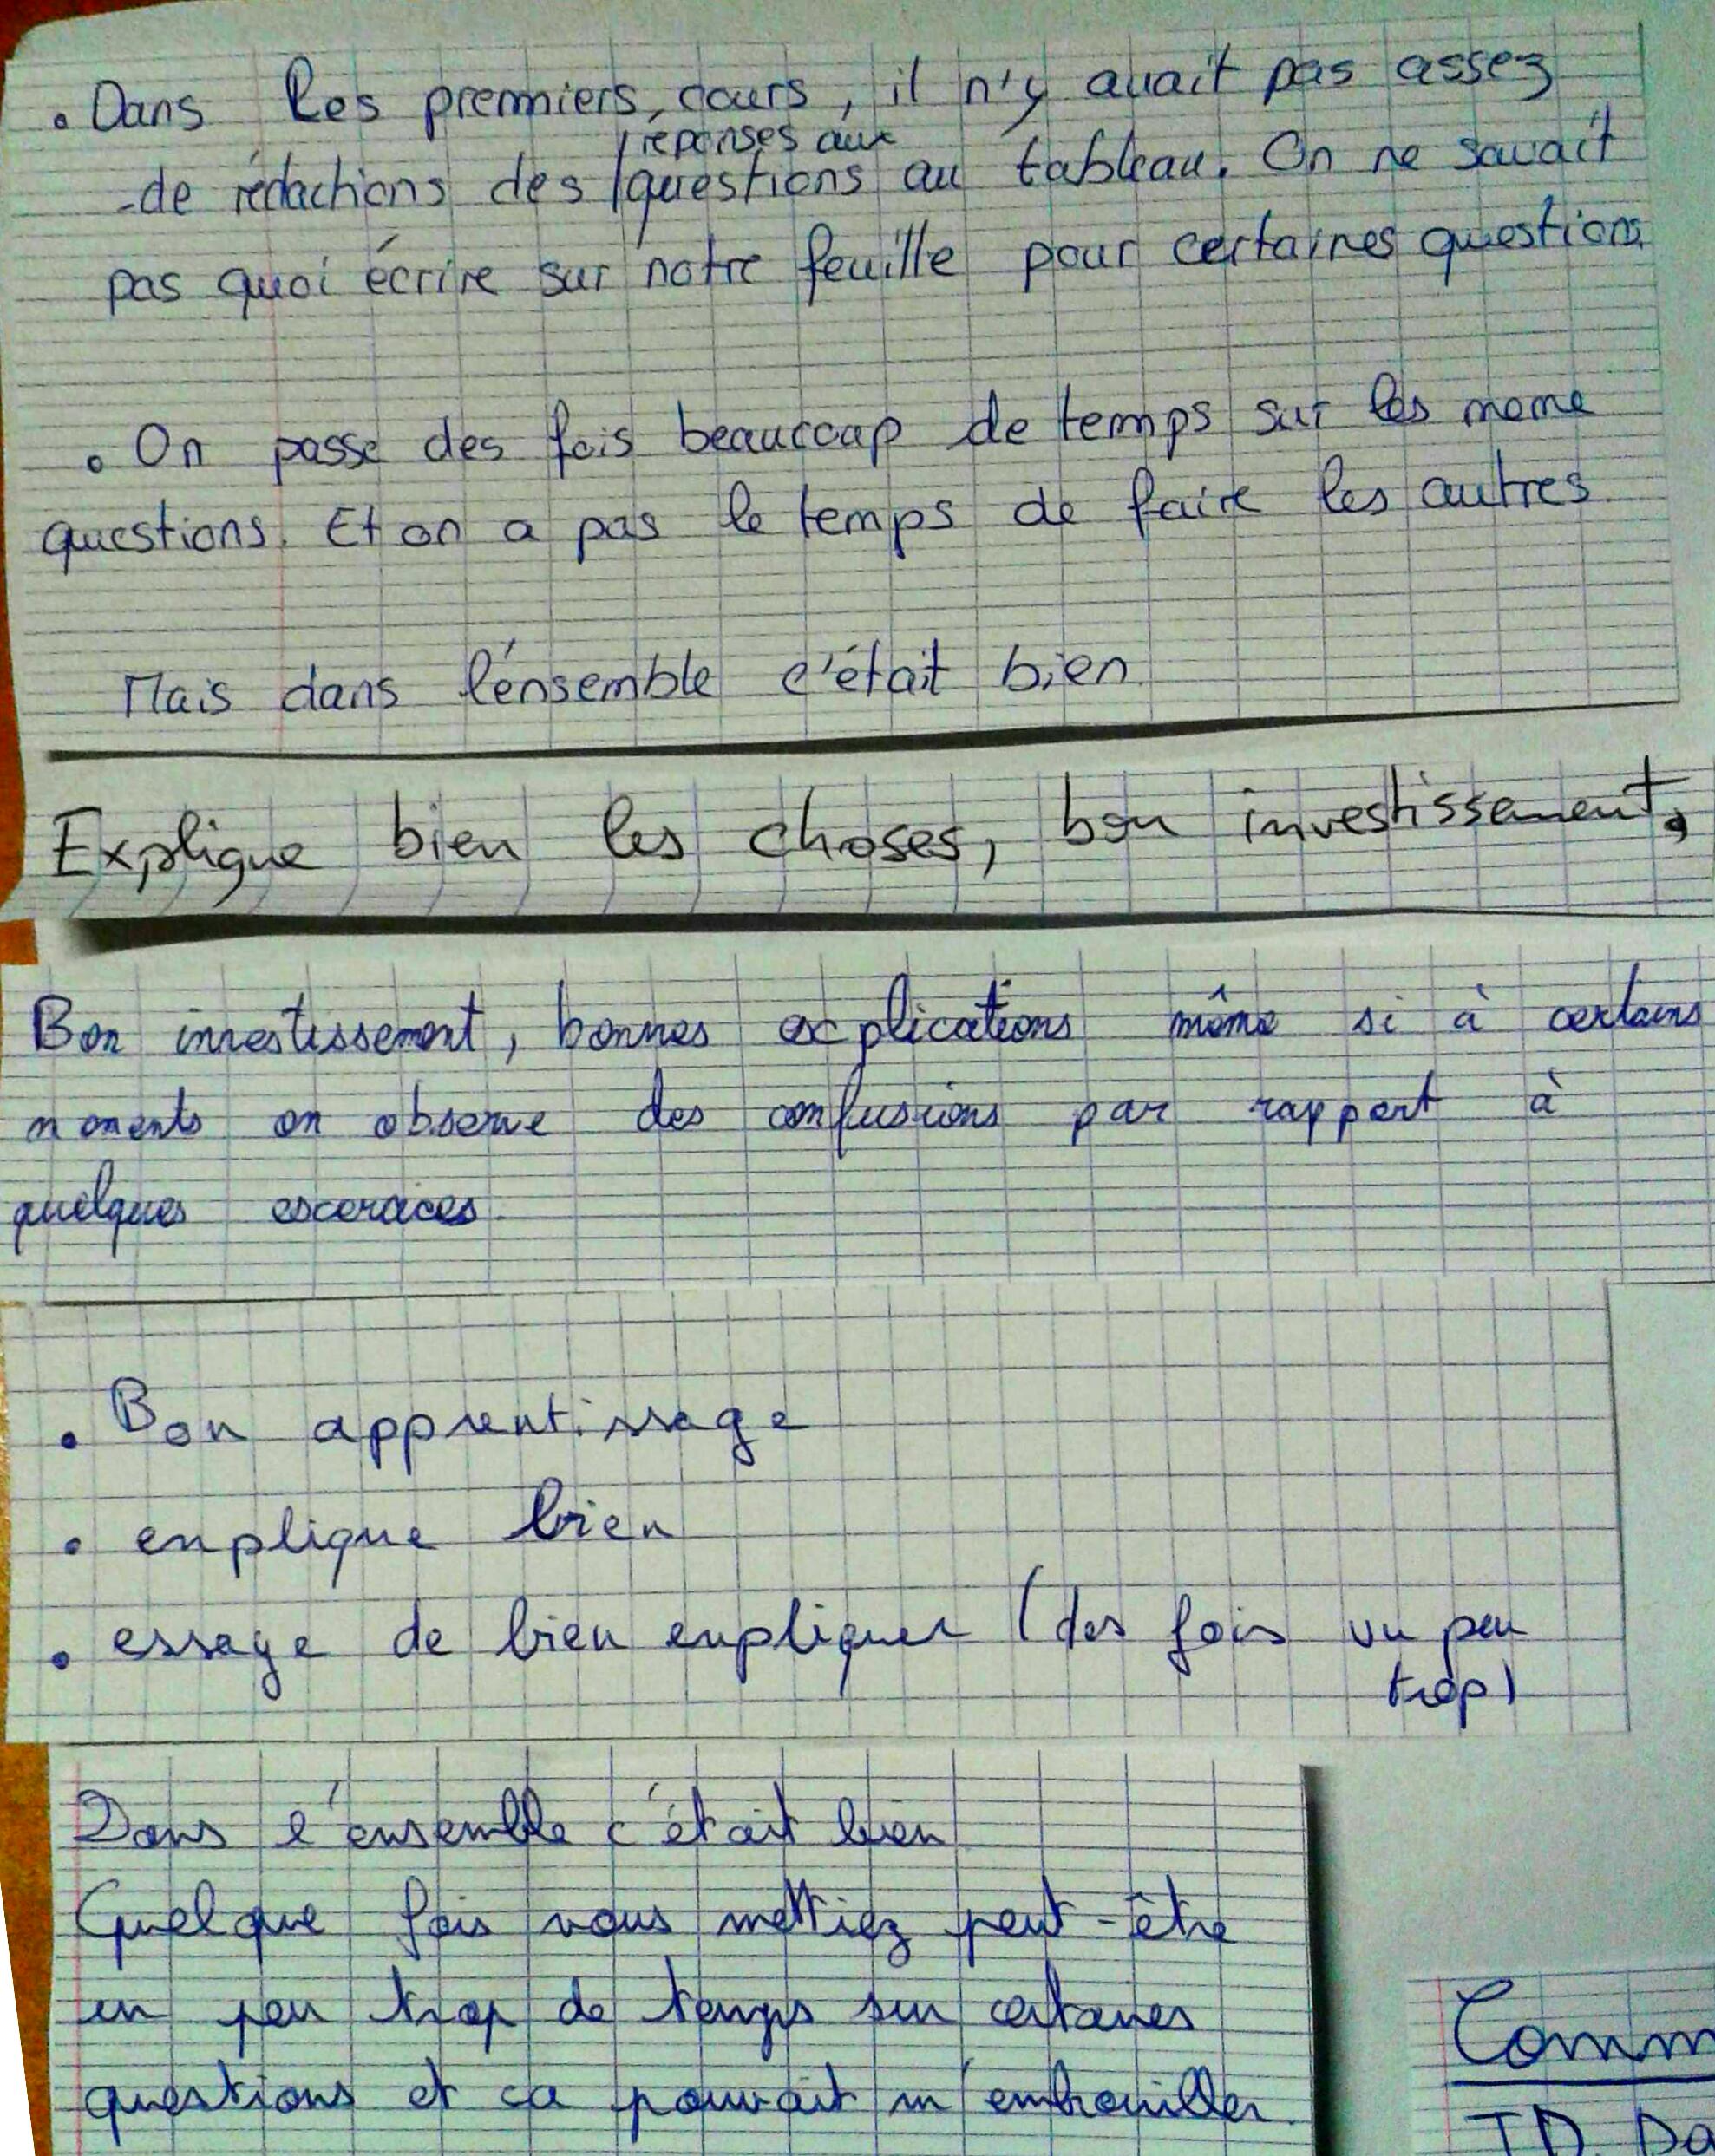 • Dans les premiers cours, il n'y avait pas assez
réponses aux
de rédactions des questions au tableau. On ne savait
pas quoi écrire sur notre feuille pour certaines questions
• On passe des fois beaucoup de temps sur les meme
questions. Et on a pas le temps de faire les autres
Mais dans l'ensemble c'était bien.
Explique bien les choses, bon investissement,
Bon investissement, bonnes explications même si à certains
moments on observe des confusions par rapport à
quelques exercices.
• Bon apprentissage
• explique bien
• essaye de bien expliquer (des fois un peu
trop)
Dans l'ensemble c'était bien
Quelque fois vous mettiez peut-être
un peu trop de temps sur certaines
questions et ca pouvait m'embrouiller.
Comm
TD Da